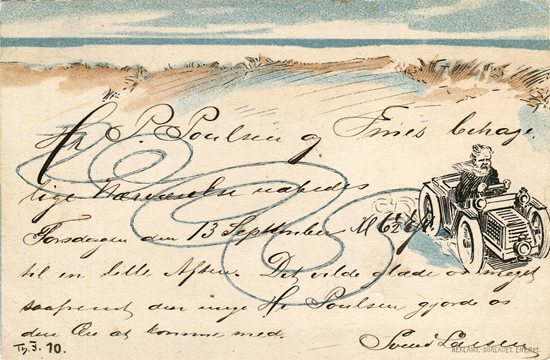 Hr P. Poulsen og Frues behage
lige Nærværelse udbedes
Torsdagen den 13 September Kl 6½
til en lille Aften. Det vilde glæde os meget
saafremt den unge Hr Poulsen gjorde os
den Ære at komme med.
Svend Larsen
Th. J. 10.
REKLAME-BUREAUET ENEBET